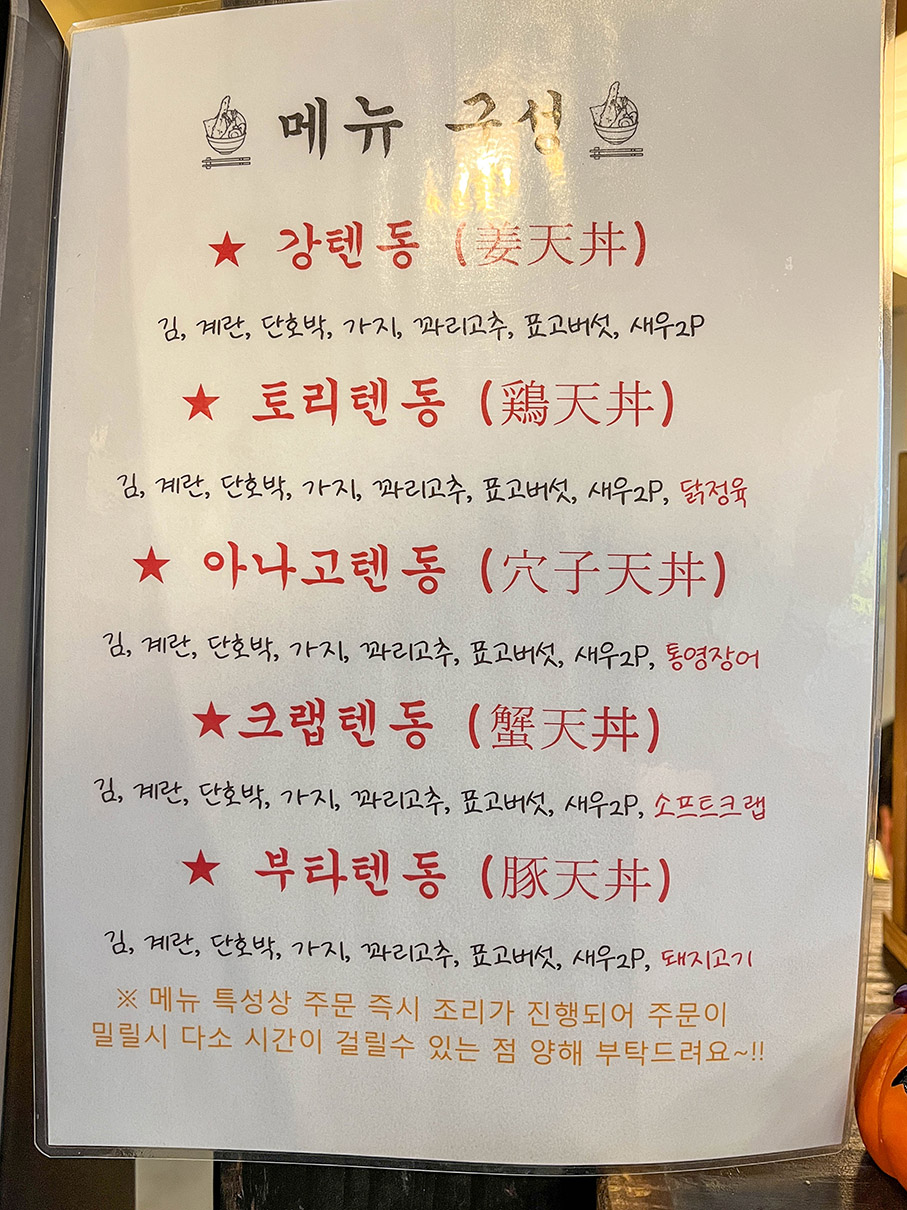 메뉴 구성
★ 강텐동 (姜天丼)
김, 계란, 단호박, 가지, 꽈리고추, 표고버섯, 새우2P
★ 토리텐동 (鶏天丼)
김, 계란, 단호박, 가지, 꽈리고추, 표고버섯, 새우2P, 닭정육
★ 아나고텐동 (穴子天丼)
김, 계란, 단호박, 가지, 꽈리고추, 표고버섯, 새우2P, 통영장어
★크랩텐동 (蟹天丼)
김, 계란, 단호박, 가지, 꽈리고추, 표고버섯, 새우2P, 소프트크랩
★ 부타텐동 (豚天丼)
김, 계란, 단호박, 가지, 꽈리고추, 표고버섯, 새우2P, 돼지고기
※ 메뉴 특성상 주문 즉시 조리가 진행되어 주문이
밀릴시 다소 시간이 걸릴수 있는 점 양해 부탁드려요~!!